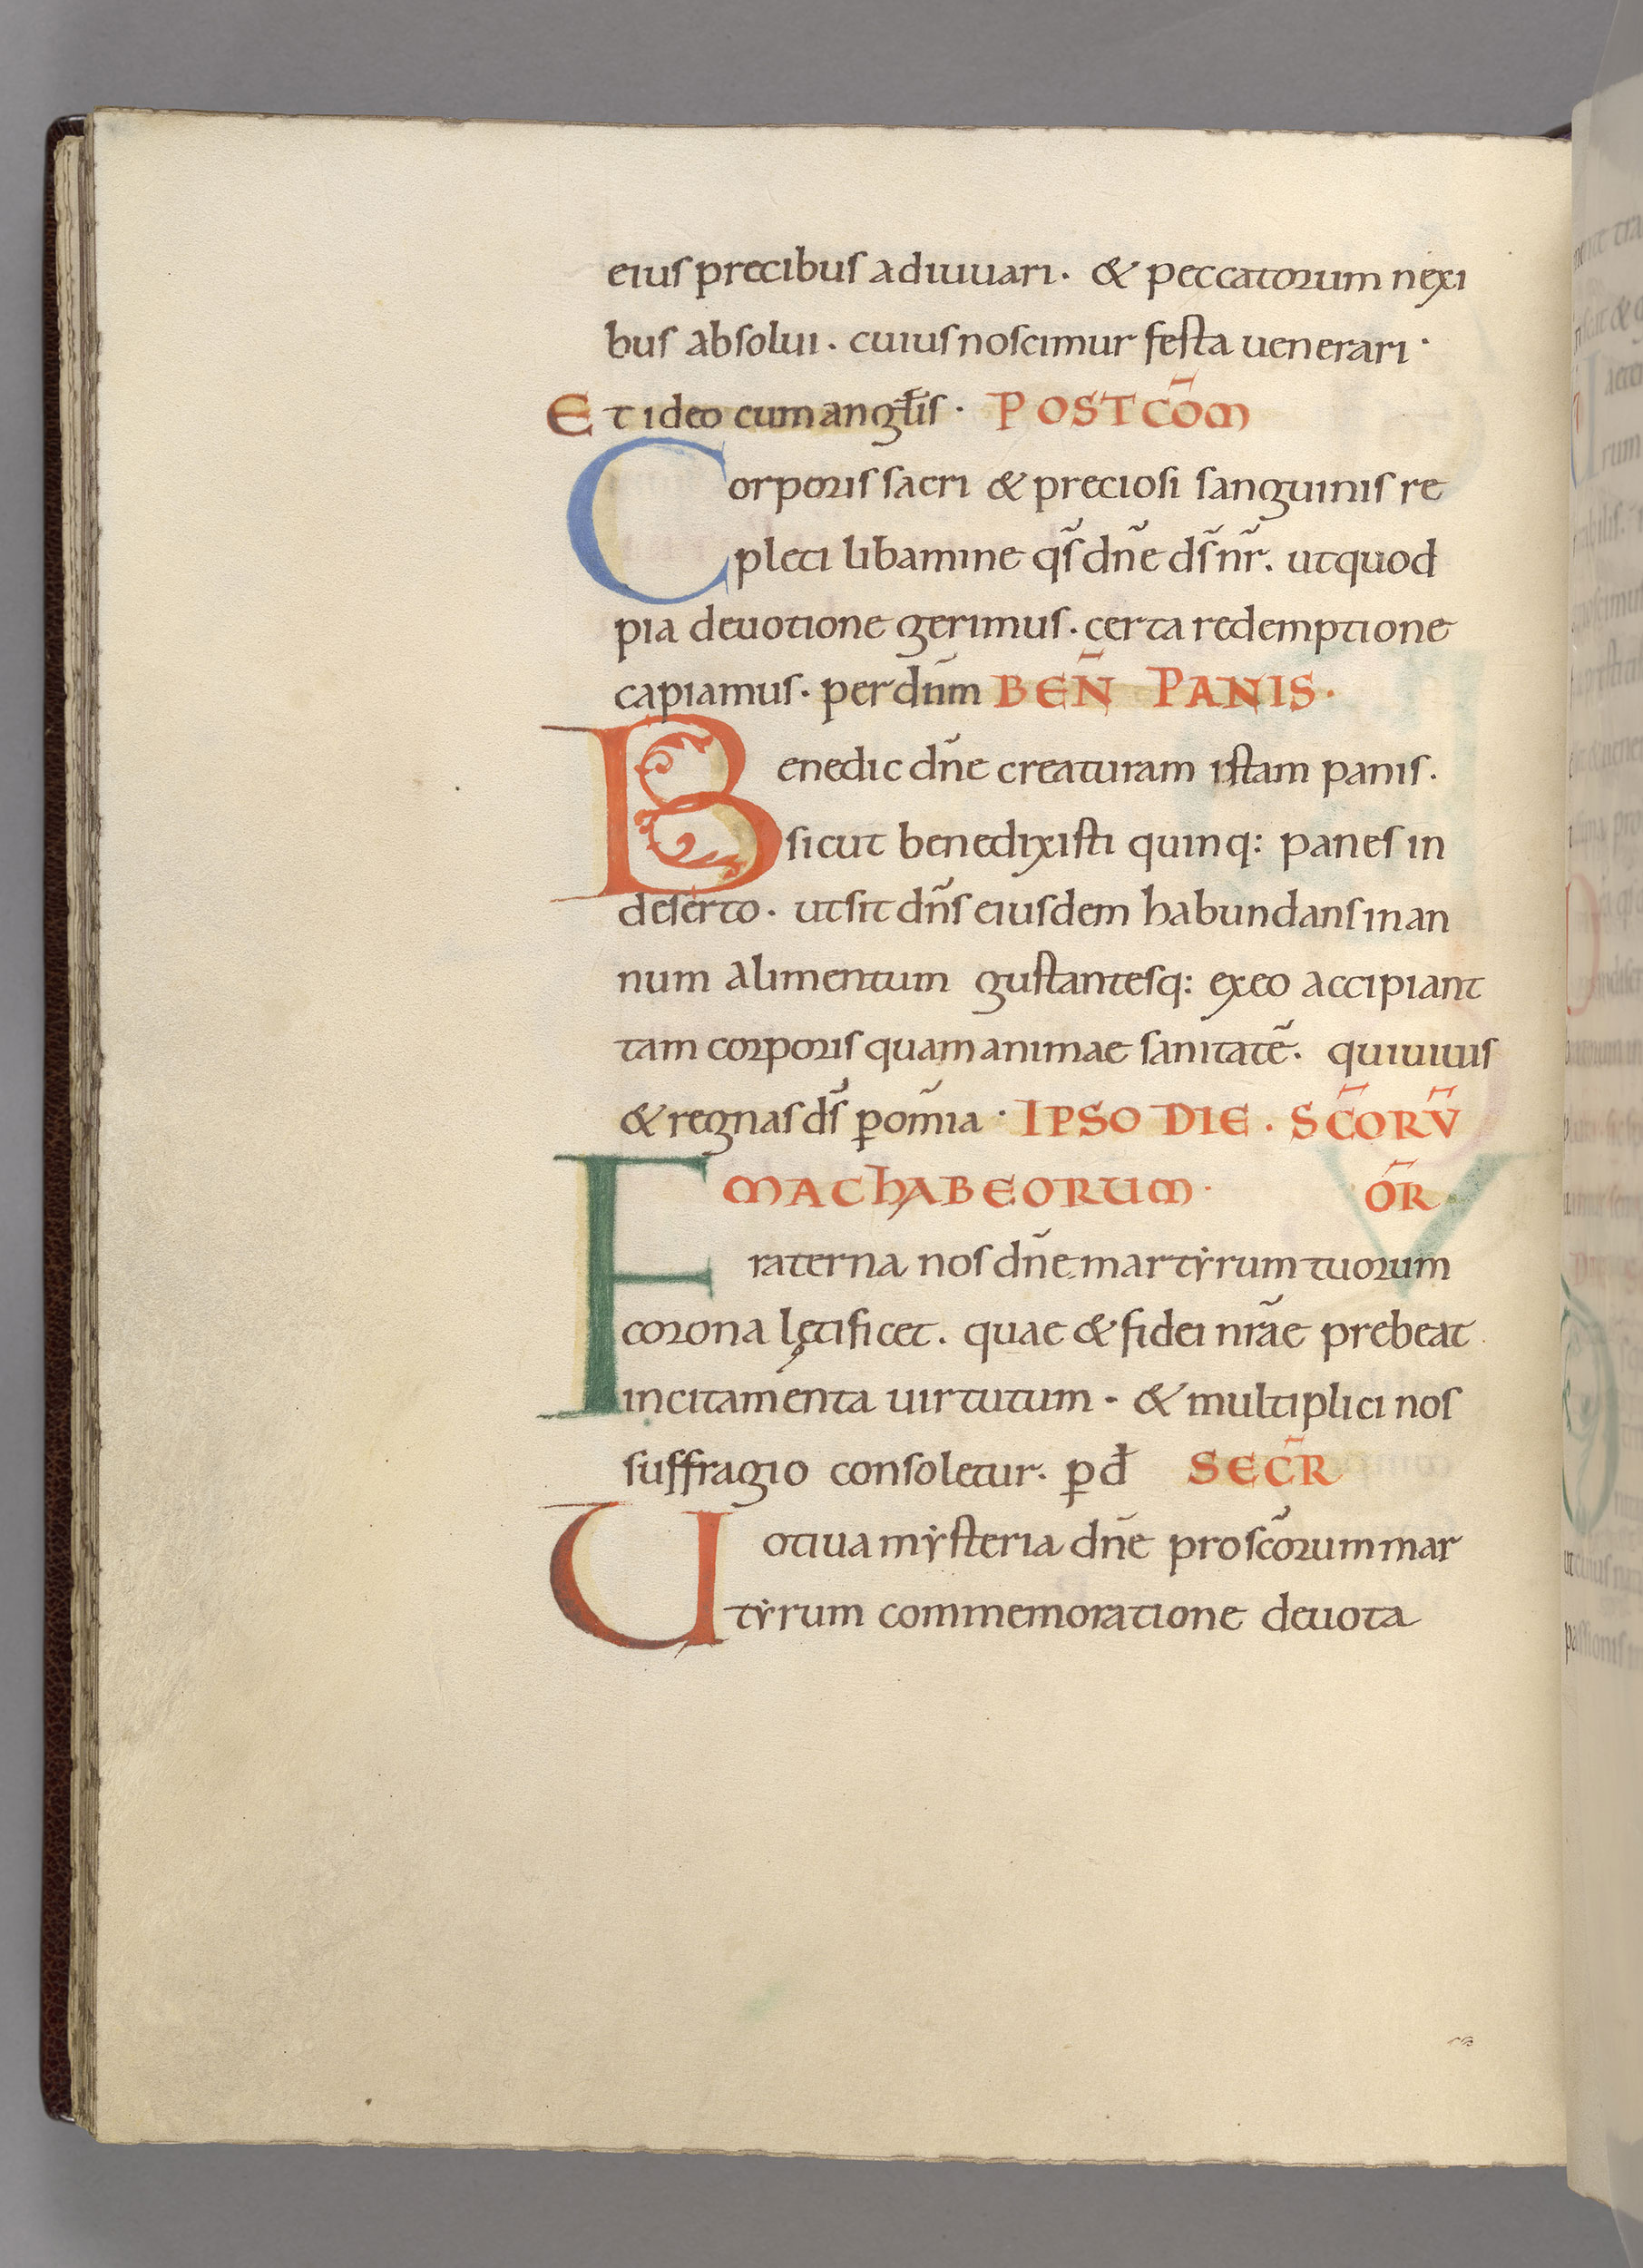 eius precibus adiuuari · & peccatorum nexi
bus absolui · cuius noscimur festa uenerari ·
Et ideo cum angłis · POSTCO͞M
Corporis sacri & preciosi sanguinis re
pleti libamine qs̄ dn̄e ds̄ nr̄. ut quod
pia deuotione gerimus · certa redemptione
capiamus · per dn̄m BEN̄ PANIS ·
Benedic dn̄e creaturam istam panis ·
sicut benedixisti quinq: panes in
deserto · ut sit dn̄s eiusdem habundans in an
num alimentum gustantesq: ex eo accipiant
tam corporis quam animae sanitatē · qui uiuis
& regnas ds̄ ꝑ om̄ia · IPSO DIE · SC̄ORV̄
MACHABEORUM · ŌR
Fraterna nos dn̄e martẏrum tuorum
corona lętificet · quae & fidei nr̄ae prebeat
incitamenta uirtutum · & multiplici nos
suffragio consoletur · ꝑ đ SEC̄R
Uotiua mẏsteria dn̄e pro sc̄orum mar
tẏrum commemoratione deuota